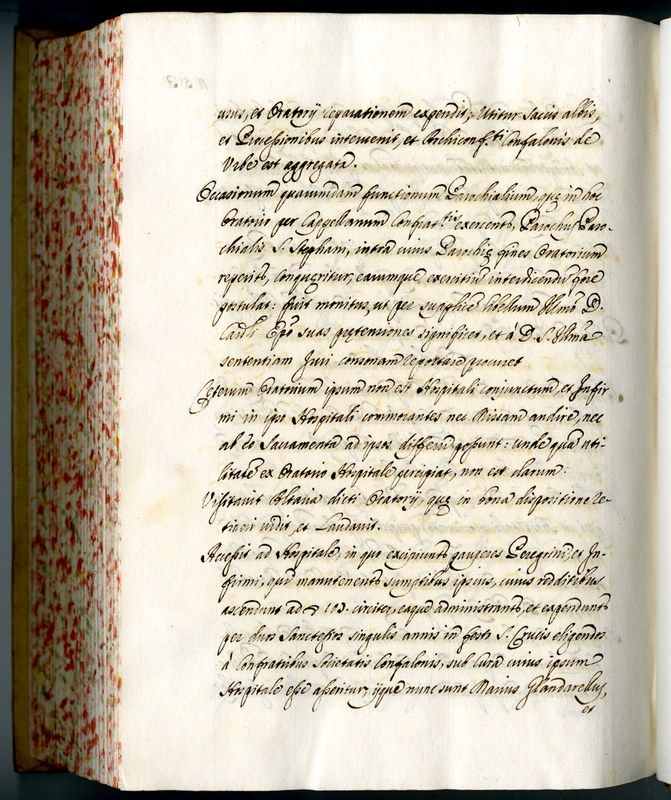 usus, et Oratorij reparationem expendit; Utitur sacis albis,
et Processionibus intervenit, et Archiconf.ti Confalonis de
Urbe est aggregata.
Occasionem quarumdam functionum Parochialium, quę in hoc
Oratorio per Cappellanum Confrat.tis exercentr, Parochus Paro-
chialis S. Stephani, intra cuius Parochię fines Oratorium
reperitr, conqueritur, earumque exercitiu interdicendu fore
postulat: fuit monitus, ut per supplice libellum Illmo D.
Cardli Epo suas prętensiones significet, et à D. S. Illma
sententiam Juri consonam reportare procuret
Cęterum Oratorium ipsum non est Hospitali conjunctum, et Infir
mi in ipso Hospitali commorantes nec Missam audire, nec
ab eo Sacramenta ad ipsos differri possunt: unde quam uti-
litatem ex Oratorio Hospitale percipiat, non est clarum.
Visitavit Altaria dicti Oratorij, quę in bona dispositione re-
tineri vidit, et laudavit.
Accessit ad Hospitale, in quo excipiuntr pauperes Peregrini, et In-
firmi, quod manutenetr sumptibus ipsius, cuius redditibus
ascendunt ad 103. circiter, eaque administrantr, et expenduntr
per duos Sanctenses singulis annis in festo S. Crucis eligendos
à Confratribus Societatis Confalonis, sub cura cuius ipsum
Hospitale esse asseritur, ijque nunc sunt Marius Glandarellus,
et